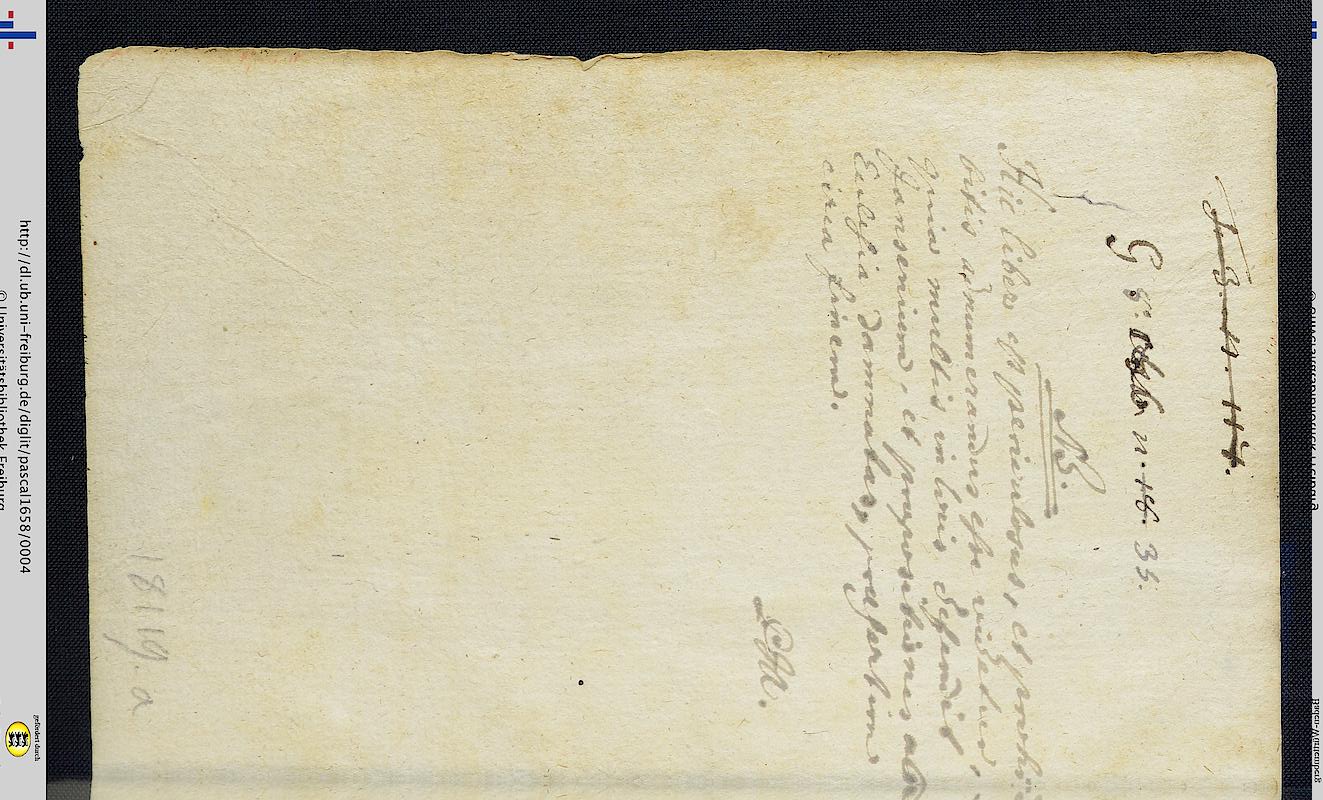 G 8. n. 18. 33.
NB.
Hic liber est periculosus, et prohi
bitis adnumerandus esse videtur,
quia multis in locis defendit
Jansenium, et propositiones ab
Ecclesia damnatas, praesertim
circa finem.
1811g. a
http://dl.ub.uni-freiburg.de/diglit/pascal1658/0004
© Universitätsbibliothek Freiburg
gefördert durch